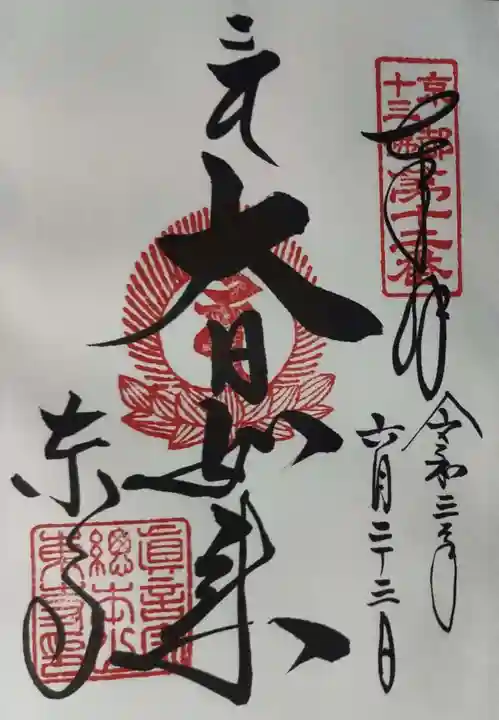 京都
十三佛
第十二番
奉拝
令和三年
六月二十三日
大日如来
東寺
真言宗
総本山
東寺